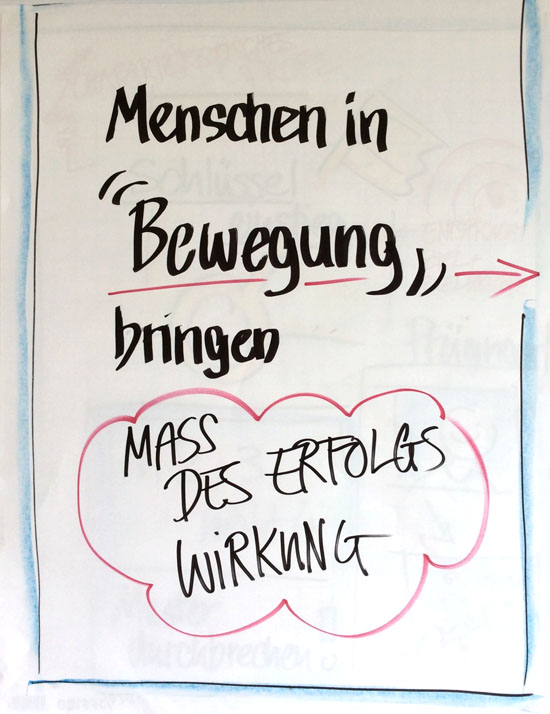 Menschen in
Bewegung
bringen
MASS
DES ERFOLGS
WIRKUNG
Schlüssel
durchbrechen